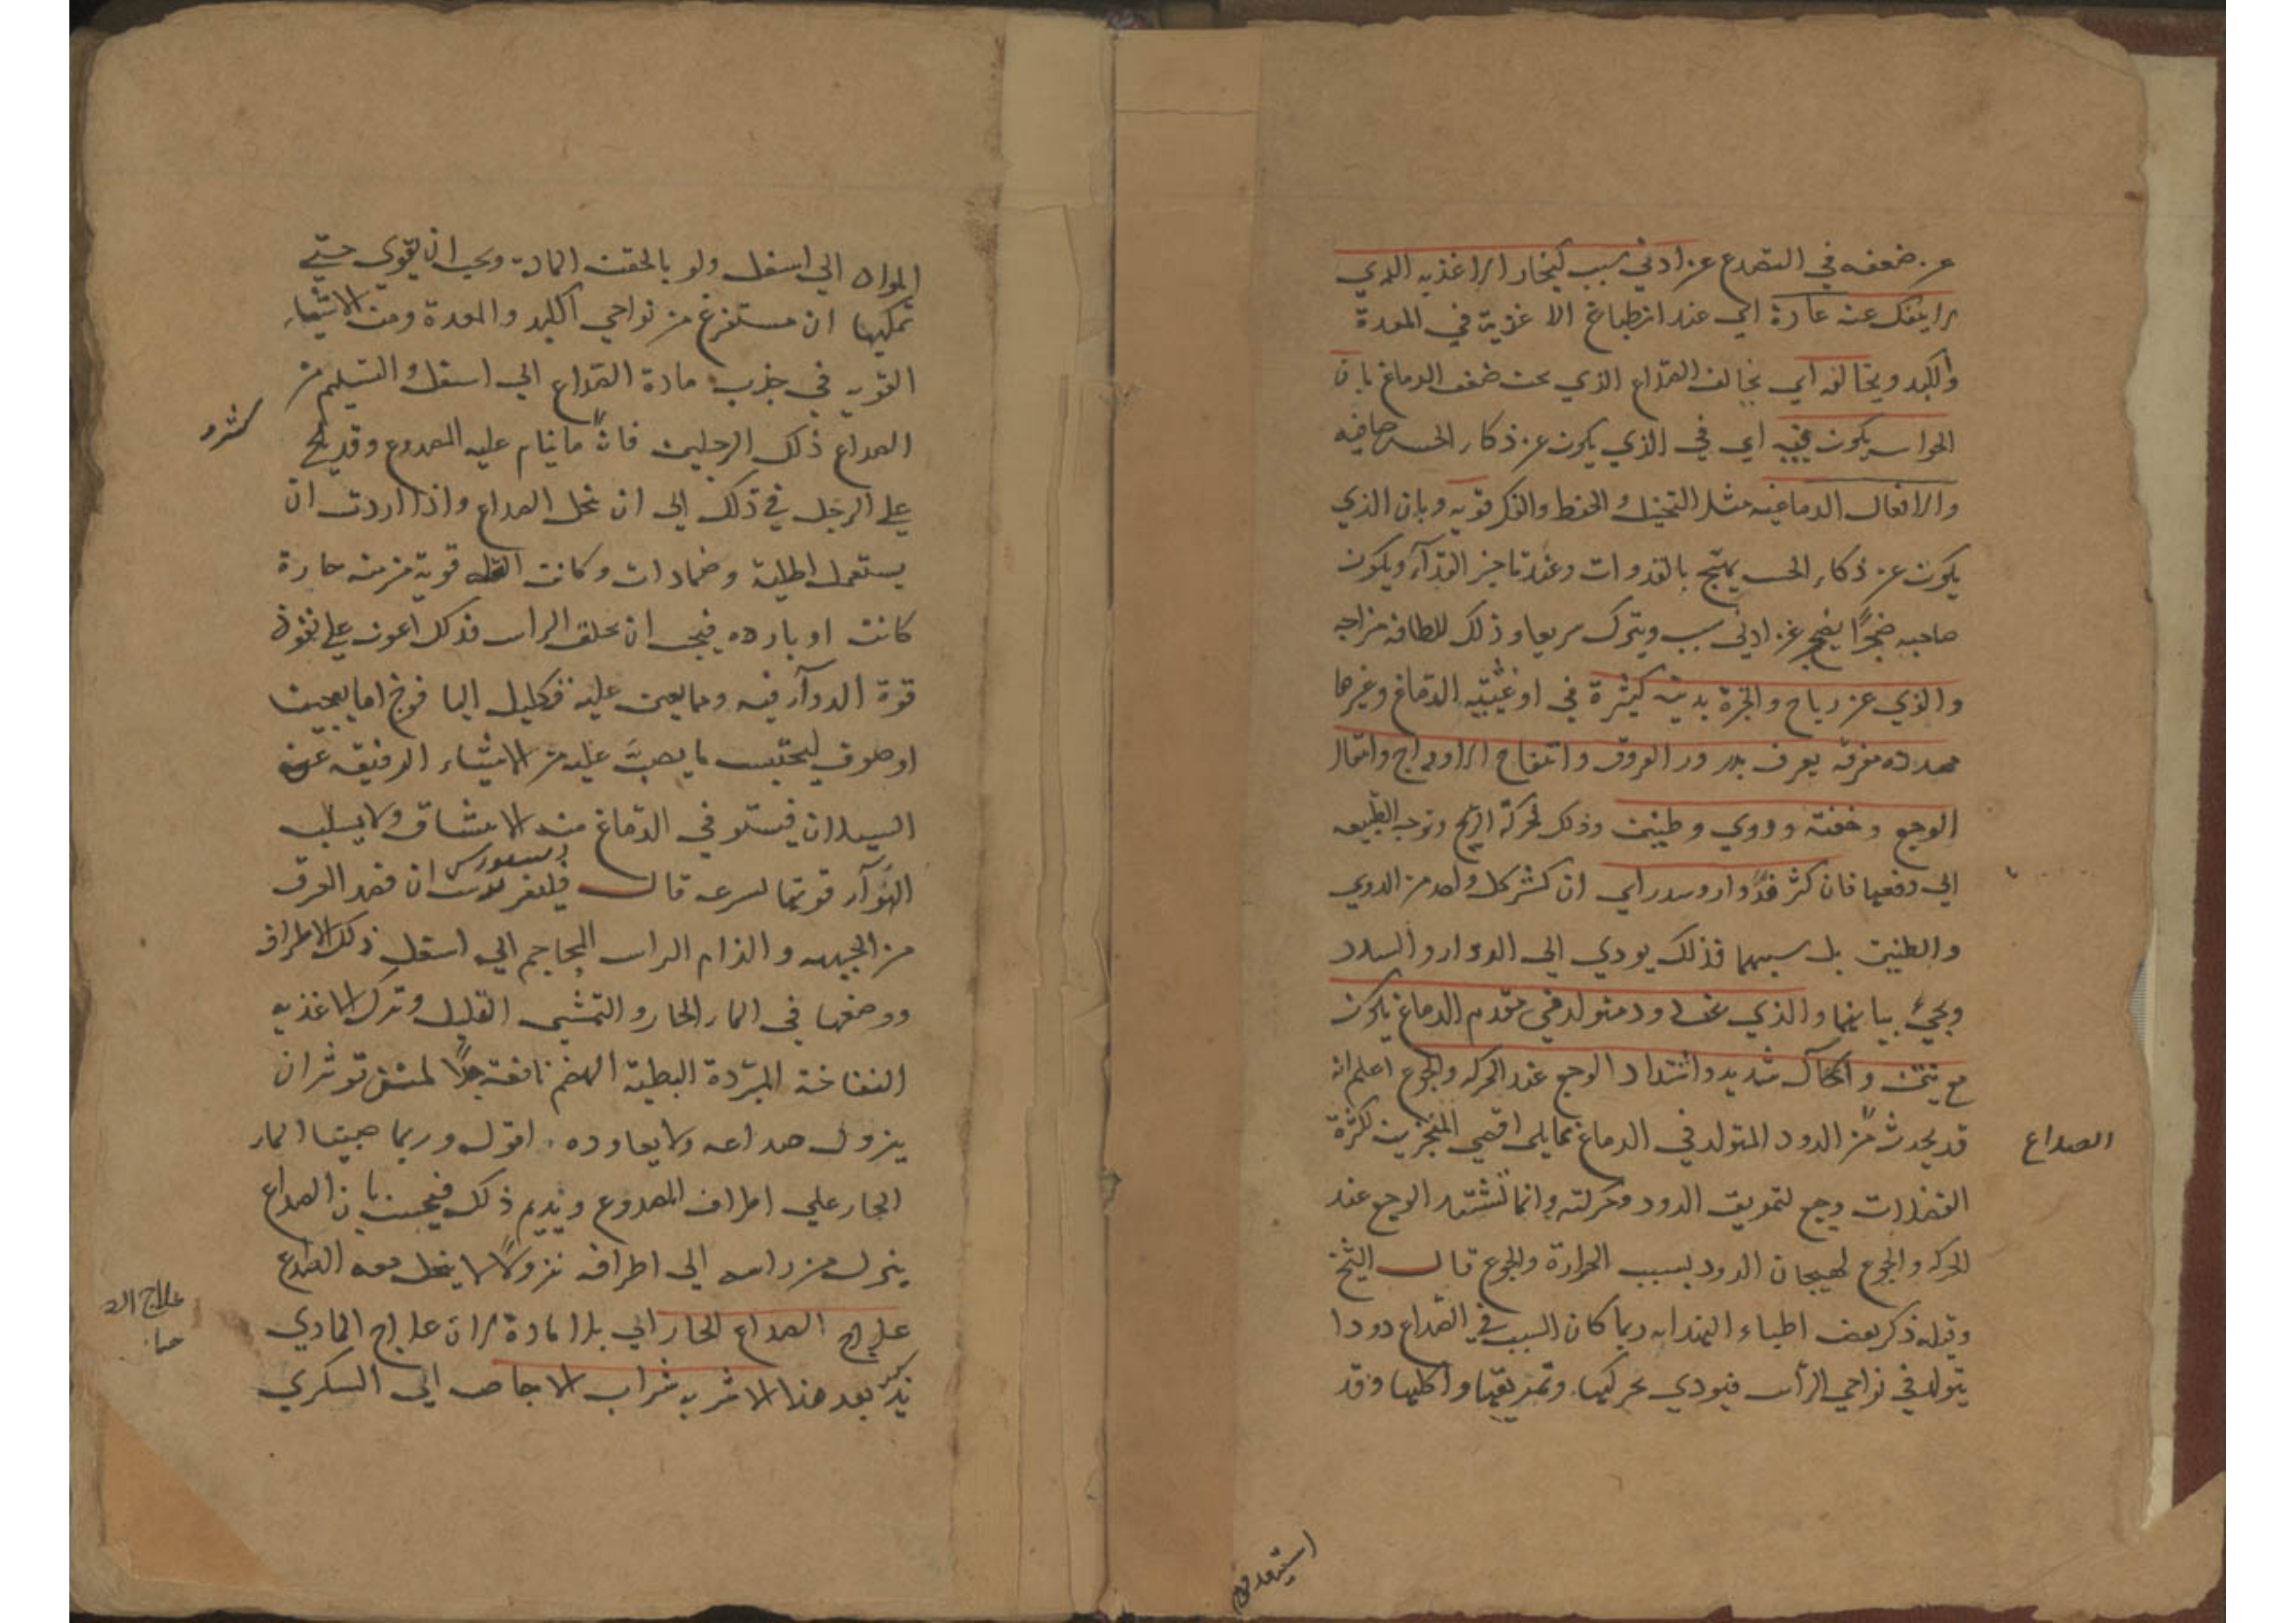 عن ضعفه في التصدع عن ادني سبب كبخار الاغذيه الذي
لا ينفك عنه عادة اي عند انطباخ الاغذية في المعدة
والكبد ويخالفه اي يخالف الصداع الذي عن ضعف الدماغ بان
الحواس يكون فيه اي في الذي يكون عن ذكاء الحس صافيه
والافعال الدماغيه مثل التخيل والحفظ والفكر قويه وبان الذي
يكون عن ذكاء الحس يهيج بالغدوات وعند تاخير الغذآء ويكون
صاحبه ضجرًا يضجر عن ادني سبب ويتحرك سريعا وذلك للطافه مزاجه
والذي عن رياح وابخرة بدنيه كثيرة في اوعيته الدماغ وغيرها
ممدده مفرقه يعرف بدرور العروق وانتفاخ الاوداج وانتقال
الوجع وخفته ودوي وطنين وذلك لحركة الريح وتوجه الطبيعه
الي دفعها فان كثر فدوار وسدر اي ان كثر كل واحد من الدوي
والطنين بل سببهما فذلك يودي الي الدوار والسدر
ويجئ بيانهما والذي عن دود متولد في مقدم الدماغ يكون
مع نتن واكآل شديد واشتداد الوجع عند الحركه والجوع اعلم انه
قد يحدث من الدود المتولد في الدماغ مما يلي اقصي المنخرين لكثرة
الفضلات وجع لتمزيق الدود وحركته وانما تشتد الوجع عند
الحركه والجوع لهيجان الدود بسبب الحرارة والجوع قال الشيخ
وقيله ذكر بعض اطباء الهند انه ربما كان السبب في الصداع دودا
يتولد في نواحي الراس فيودي بحركتها وتمزيقها واكلها وقد
الصداع
المواد الي اسفل ولو بالحقنة الحادة ويجب ان يقوي حتي
تمكنها ان مستفرغ من نواحي الكبد والمعدة ومن الاشياء
القويه في جذب مادة الصداع الي اسفل والتسليم من
الصداع ذلك الرجلين فانه ما ينام عليه المصدوع وقد يلح
علي الرجل في ذلك الي ان ينحل الصداع واذا اردت ان
يستعمل اطلية وضمادات وكانت العله قوية مزمنه حارة
كانت او بارده فيجب ان يحلق الراس فذلك اعون علي نفوذ
قوة الدوآء فيه ومما يعين عليه تكليل اليافوخ اما بعجين
او صوف ليحتبس ما يصب عليه من الاشياء الرقيقه عن
السيلان فيستوفي الدماغ منه الانتشاق ولا يسلب
الهوآء قوتها لسرعه قال فيلغريوس ان فصد العرق
من الجبهه والزام الراس المحاجم الي اسفل وذلك الاطراف
ووضعها في الماء الحار والتمشي القليل وترك الاغذيه
النفاخة المبردة البطية الهضم نافعة جدًا لمن توثر ان
يزول صداعه ولا يعاوده اقول وربما صببنا الماء
الحار علي اطراف المصدوع ونديم ذلك فيحس بان الصداع
ينزل من راسه الي اطرافه نزولا ينحل معه الصداع
علاج الصداع الحار اي بلا مادة لان علاج المادي
يذكر بعد هذا الاشربه شراب الاجاص اي السكري
علاج الـ